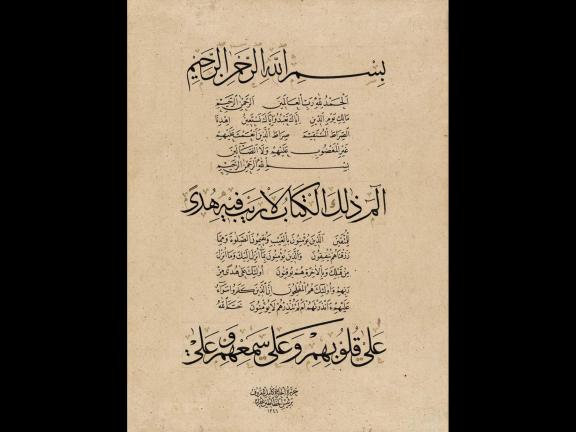 بسم الله الرحمن الرحيم
الحمد لله رب العالمين الرحمن الرحيم
مالك يوم الدين اياك نعبد واياك نستعين اهدنا
الصراط المستقيم صراط الذين انعمت عليهم
غير المغضوب عليهم ولا الضالين
بسم الله الرحمن الرحيم
الم ذلك الكتاب لا ريب فيه هدى
للمتقين الذين يؤمنون بالغيب ويقيمون الصلوة ومما
رزقناهم ينفقون والذين يؤمنون بما انزل اليك وما انزل
من قبلك وبالاخرة هم يوقنون اولئك على هدى من
ربهم واولئك هم المفلحون ان الذين كفروا سواء
عليهم ءانذرتهم ام لم تنذرهم لا يؤمنون ختم الله
على قلوبهم وعلى سمعهم وعلى